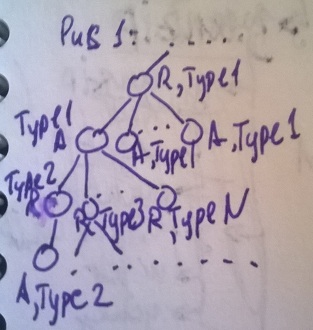 Рив 1:
R, Type1
Type1
A
A, Type1
A, Type 1
Type2
R
R, Type3
R, Type N
A, Type 2